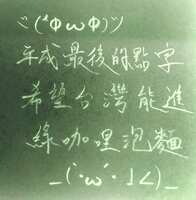 ヾ(*ΦωΦ)ツ
平成最後的點字
希望台灣能進
線咖哩泡麵
_(:ω:」∠)_